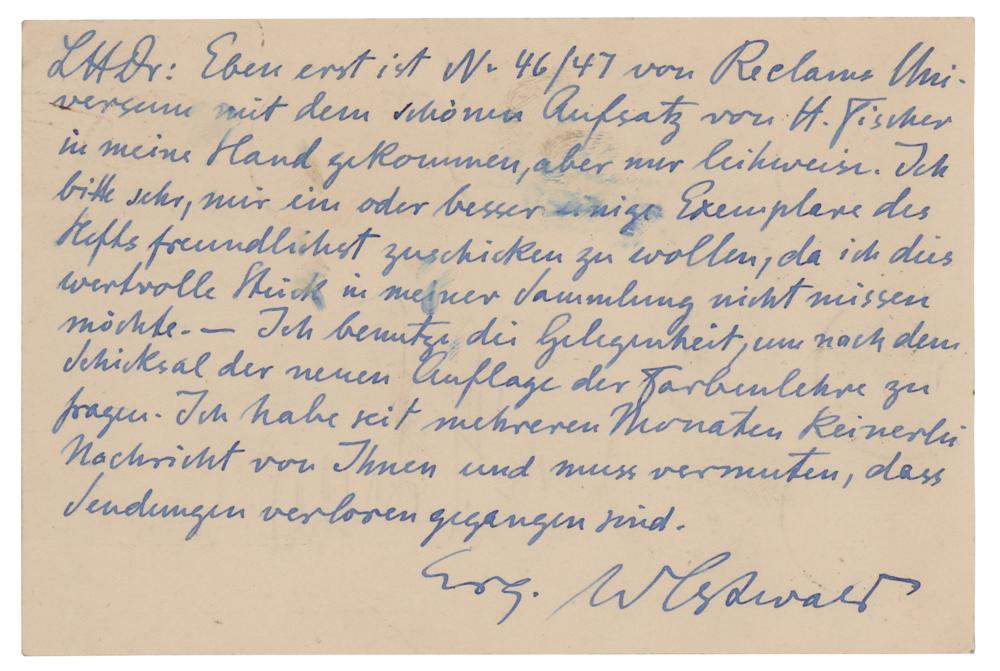 LHDr: Eben erst ist Nr 46/47 von Reclams Uni-
versum mit dem schönen Aufsatz von H. Fischer
in meine Hand gekommen, aber nur leihweise. Ich
bitte sehr, mir ein oder besser einige Exemplare des
Hefts freundlichst zuschicken zu wollen, da ich dies
wertvolle Stück in meiner Sammlung nicht missen
möchte. — Ich benutze die Gelegenheit, um nach dem
Schicksal der neuen Auflage der Farbenlehre zu
fragen. Ich habe seit mehreren Monaten keinerlei
Nachricht von Ihnen und muss vermuten, dass
Sendungen verloren gegangen sind.
Erg. W Ostwald